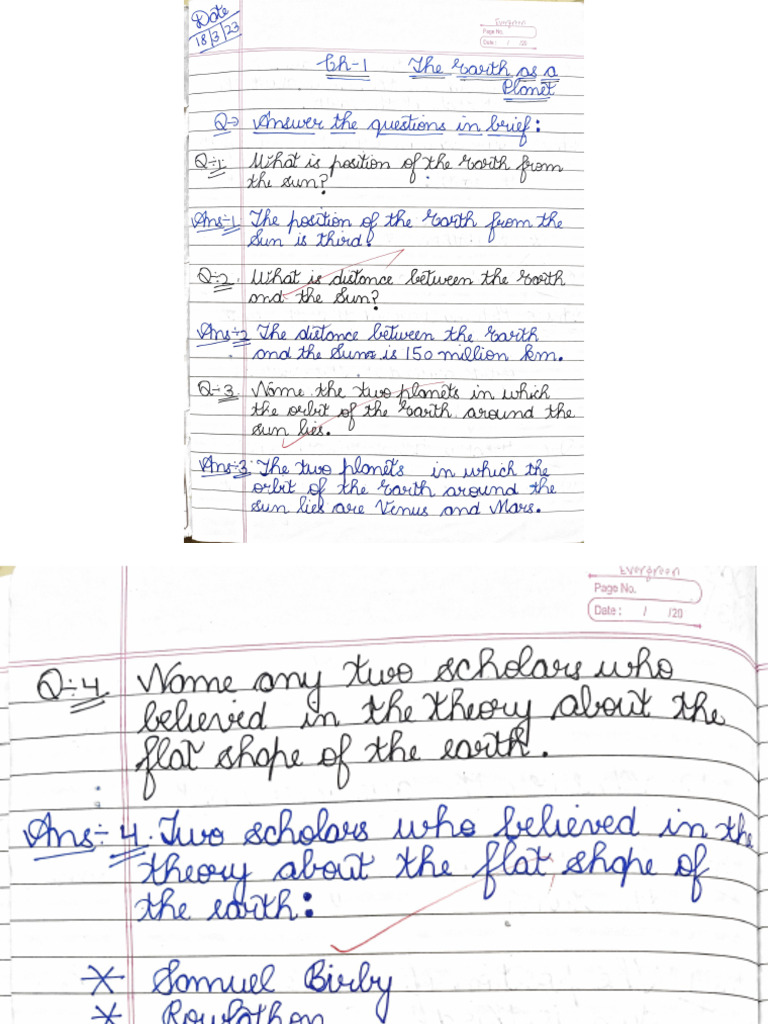 Date
18/3/23
Evergreen
Page No.
Date: / /20
Ch-1 The Earth as a
Planet
Q→ Answer the questions in brief:
Q÷1 What is position of the Earth from
the sun?
Ans÷1 The position of the Earth from the
Sun is third.
Q÷2 What is distance between the Earth
and the Sun?
Ans÷2 The distance between the Earth
and the Sun is 150 million km.
Q÷3 Name the two planets in which
the orbit of the Earth around the
sun lies.
Ans÷3 The two planets in which the
orbit of the Earth around the
sun lies are Venus and Mars.
Evergreen
Page No.
Date: / /20
Q÷4 Name any two scholars who
believed in the theory about the
flat shape of the earth.
Ans÷4. Two scholars who believed in the
theory about the flat shape of
the earth:
* Samuel Birby
* Rowbathon